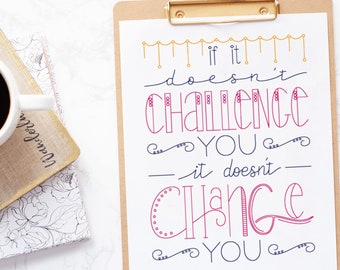 if it
doesn't
CHALLENGE
YOU
it doesn't
CHANGE
YOU
Wanderlust